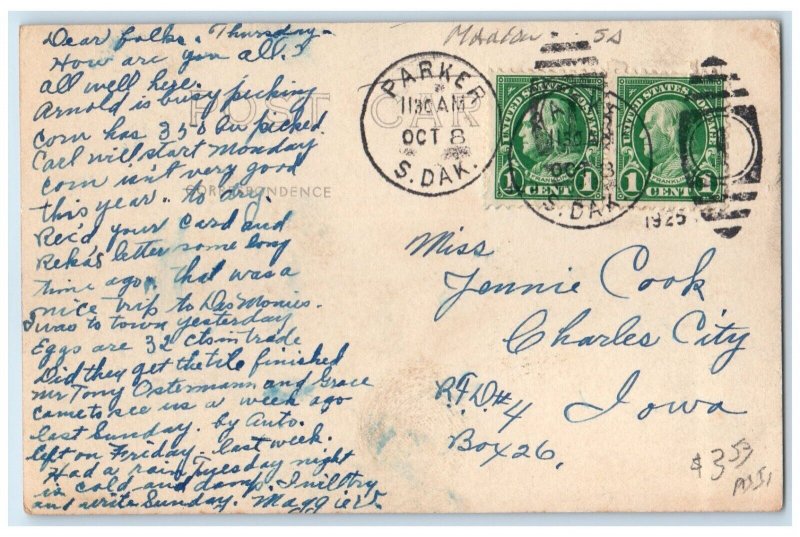 Dear folks. Thursday-
How are you all.
all well here.
Arnold is busy picking
corn has 350 bu picked.
Carl will start Monday
corn isn't very good
this year - to dry.
Rec'd your card and
Reka's letter some long
time ago. that was a
nice trip to Des Monies.
I was to town yesterday
Eggs are 32 cts in trade
Did they get the tile finished
Mr Tony Ostermann and Grace
came to see us a week ago
last Sunday. by auto.
left on Friday - last week.
Had a rain Tuesday night
is cold and damp. I will try
and write Sunday. Maggie
POST CARD
CORRESPONDENCE
PARKER
1130 AM
OCT 8
S. DAK.
UNITED STATES POSTAGE
FRANKLIN
1 CENT 1
UNITED STATES POSTAGE
FRANKLIN
1 CENT 1
S. DAK
1925
Miss
Jennie Cook
Charles City
R.F.D. #4 Iowa
Box 26.
$3 53